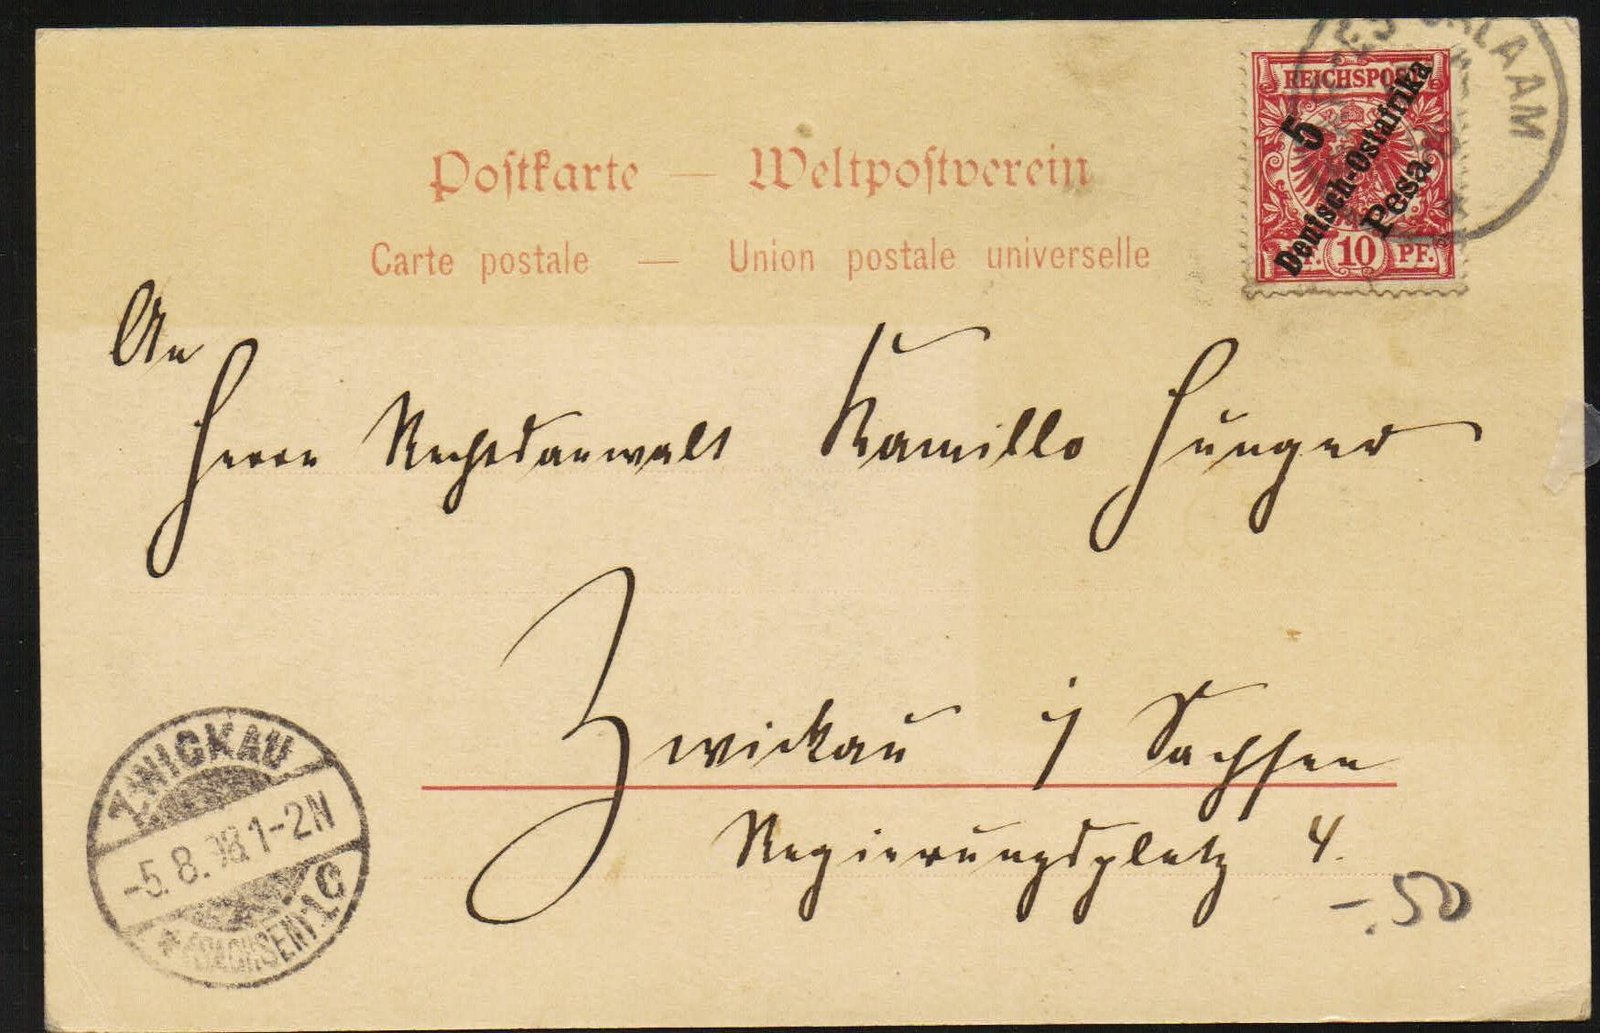 Postkarte — Weltpostverein
Carte postale — Union postale universelle
REICHSPOST
5
Deutsch-Ostafrika
Pesa
10 PF.
ES SALAAM
An
Herrn Rechtsanwalt Kamillo Hunger
Zwickau i/ Sachsen
Regierungsplatz 4.
-.50
ZWICKAU
-5.8.98.1-2N
* (SACHSEN) 1c